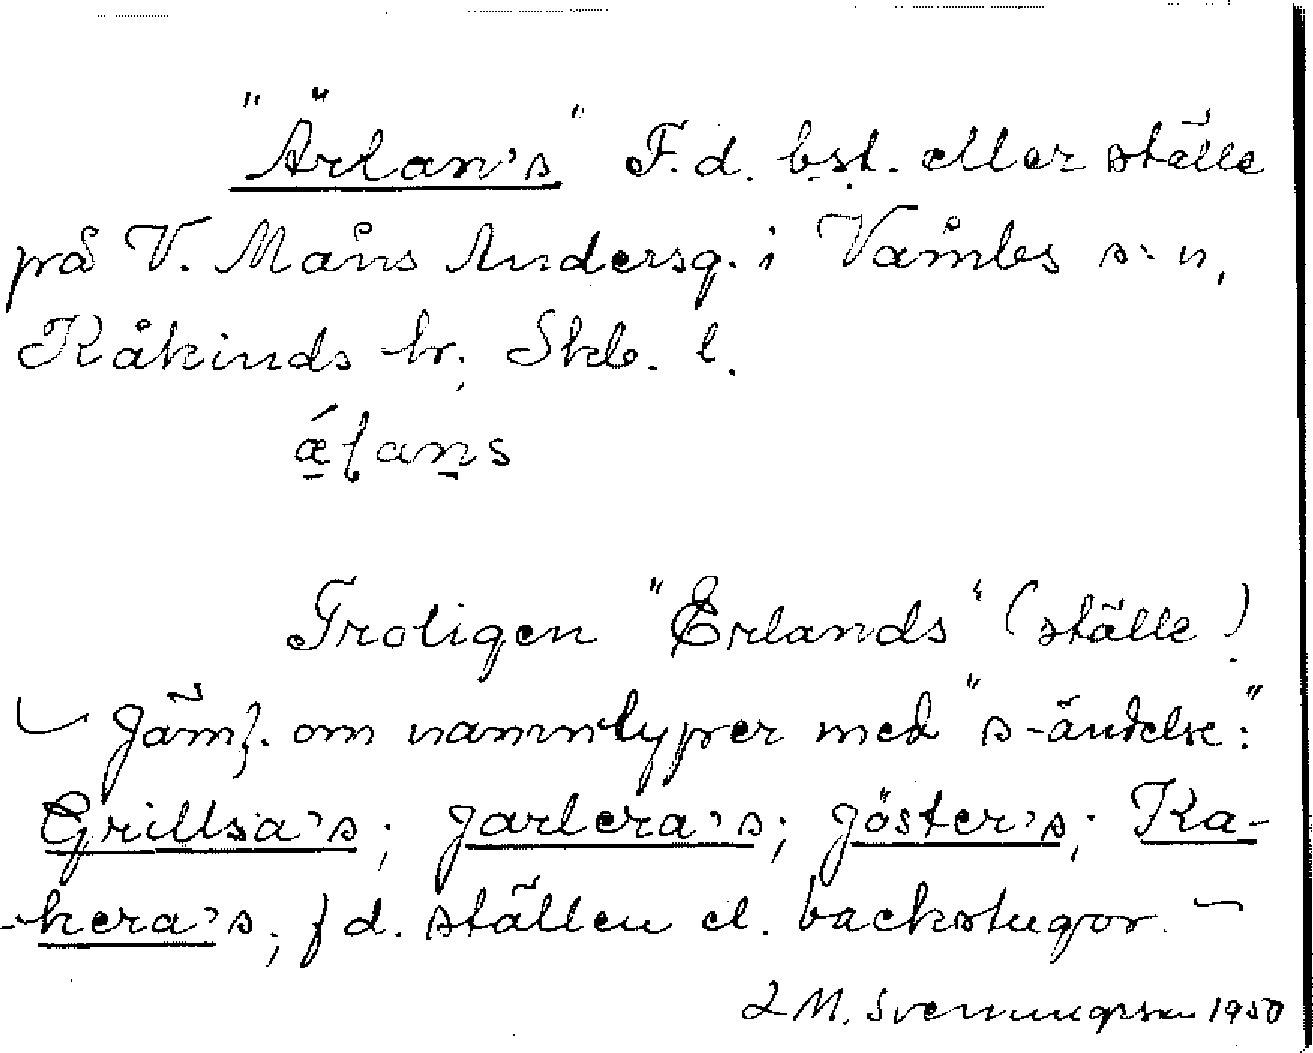 "Ärlan's" F.d. bst. eller ställe
på V. Måns Andersg. i Våmbs s:n,
Kåkinds hr; Skb. l.
Troligen "Erlands" (ställe).
Jämf. om namntyper med "s-ändelse:"
Grillsa's; Jarlera's; Jöster's; Ka-
-kera's; f d. ställen el. backstugor. –
L M. Svenungsson 1950